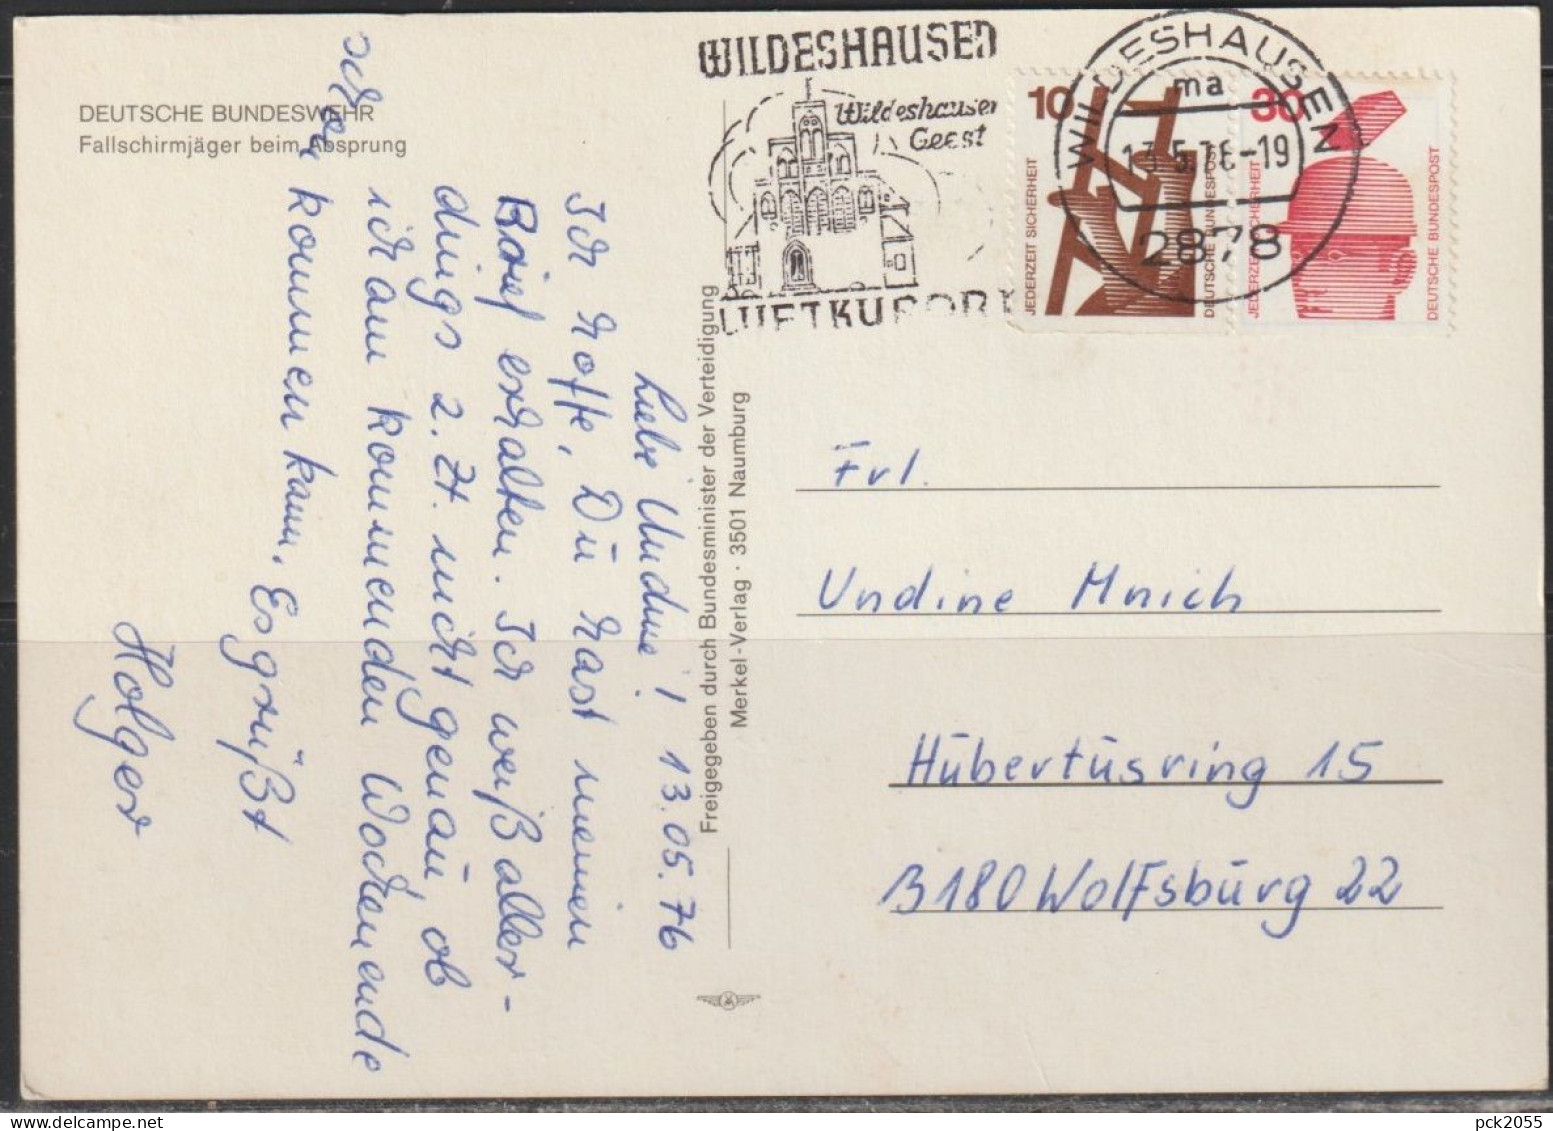 DEUTSCHE BUNDESWEHR
Fallschirmjäger beim Absprung
Liebe Undine! 13.05.76
Ich hoffe, Du hast meinen
Brief erhalten. Ich weiß aller-
dings z. Zt. nicht genau, ob
ich am kommenden Wochenende
kommen kann. Es grüßt
Holger
Freigegeben durch Bundesminister der Verteidigung
Merkel-Verlag · 3501 Naumburg
WILDESHAUSEN
Wildeshauser
Geest
LUFTKURORT
WILDESHAUSEN
ma
13.5.76-19
2878
10
JEDERZEIT SICHERHEIT
DEUTSCHE BUNDESPOST
30
JEDERZEIT SICHERHEIT
DEUTSCHE BUNDESPOST
Frl.
Undine Mnich
Hubertusring 15
3180 Wolfsburg 22
pck2055